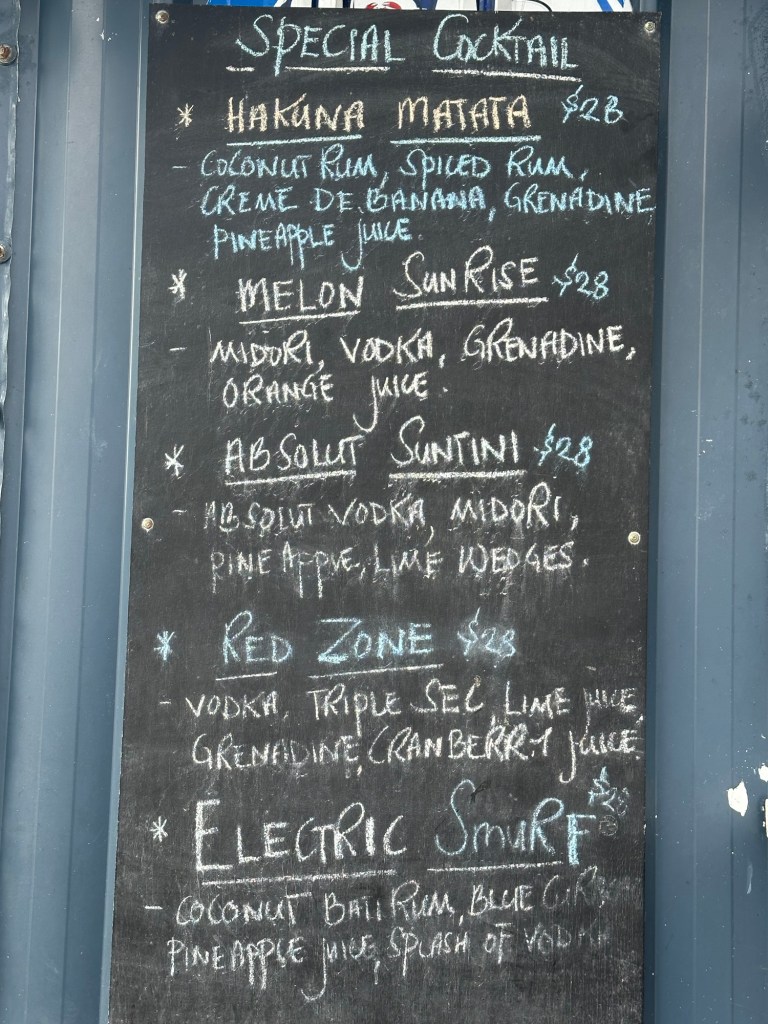 SPECIAL COCKTAIL
* HAKUNA MATATA $28
- COCONUT RUM, SPICED RUM,
CREME DE BANANA, GRENADINE
PINEAPPLE JUICE.
* MELON SUNRISE $28
- MIDORI, VODKA, GRENADINE,
ORANGE JUICE.
* ABSOLUT SUNTINI $28
- ABSOLUT VODKA, MIDORI,
PINEAPPLE, LIME WEDGES.
* RED ZONE $28
- VODKA, TRIPLE SEC, LIME JUICE,
GRENADINE, CRANBERRY JUICE.
$28
* ELECTRIC SMURF
- COCONUT BATI RUM, BLUE
PINEAPPLE JUICE, SPLASH OF VODKA